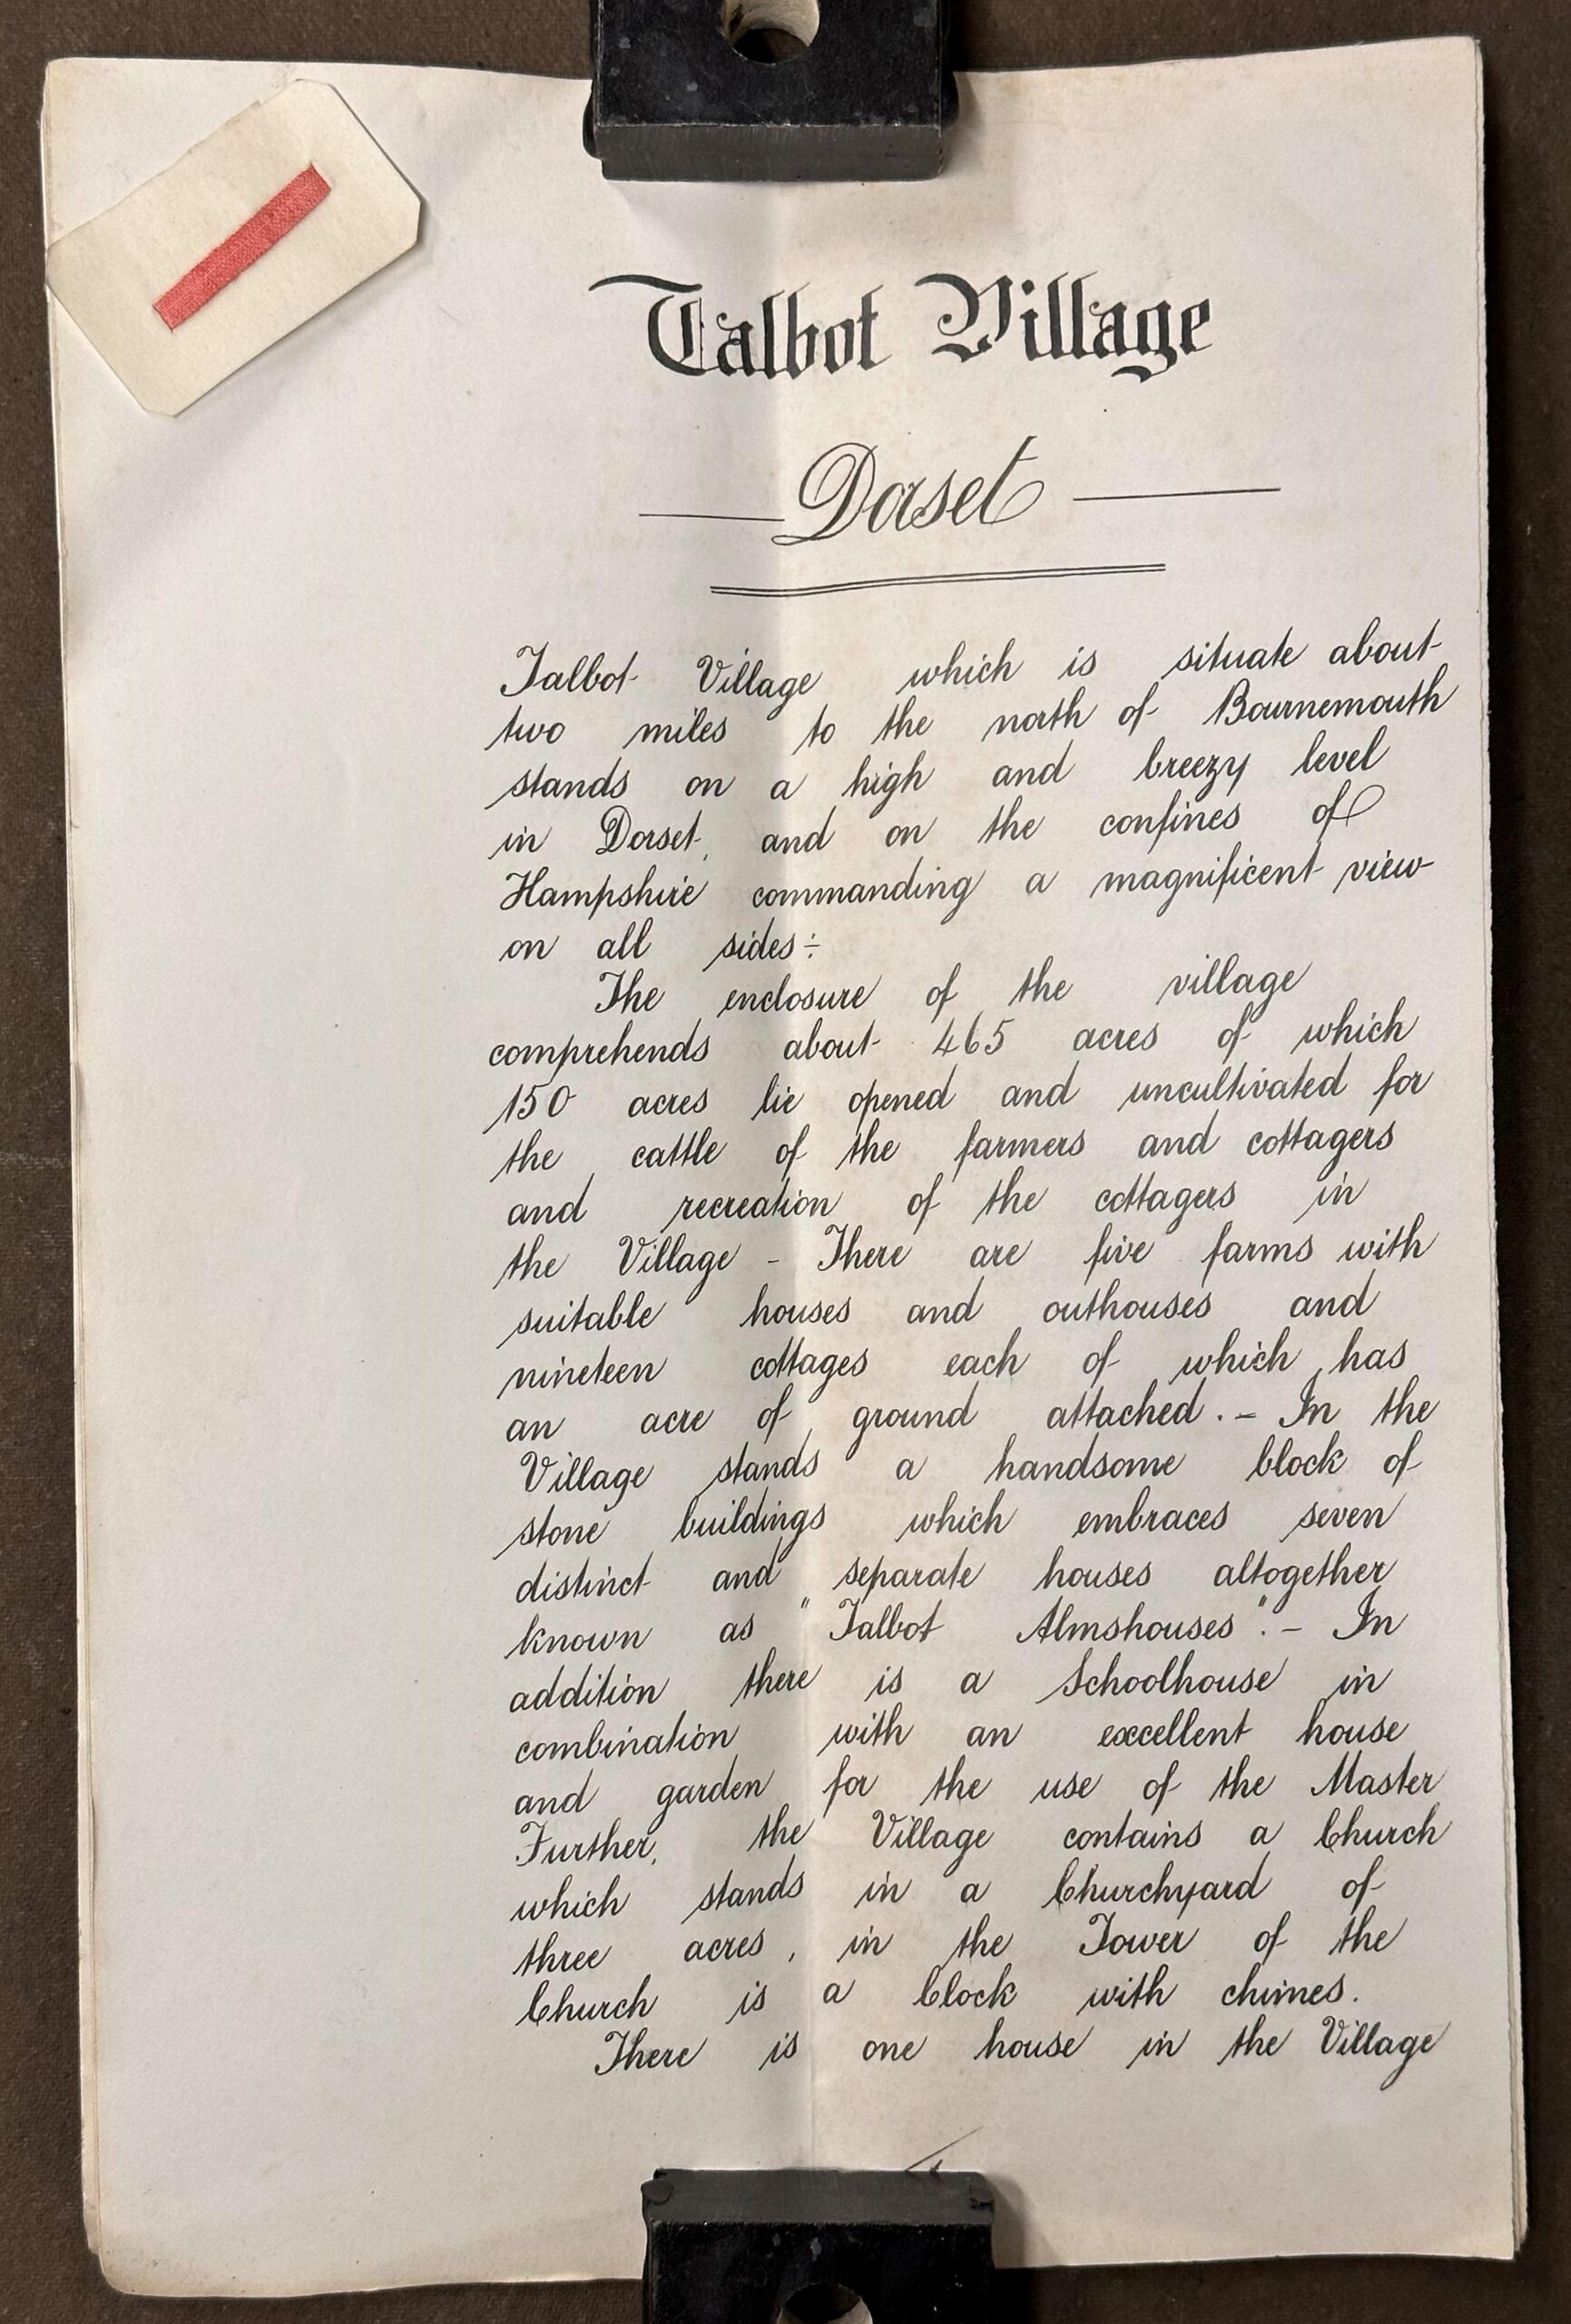 Talbot Village
Dorset
Talbot Village which is situate about
two miles to the north of Bournemouth
stands on a high and breezy level
in Dorset, and on the confines of
Hampshire commanding a magnificent view
on all sides÷
The enclosure of the village
comprehends about 465 acres of which
150 acres lie opened and uncultivated for
the cattle of the farmers and cottagers
and recreation of the cottagers in
the Village - There are five farms with
suitable houses and outhouses and
nineteen cottages each of which has
an acre of ground attached. - In the
Village stands a handsome block of
stone buildings which embraces seven
distinct and separate houses altogether
known as "Talbot Almshouses". - In
addition there is a Schoolhouse in
combination with an excellent house
and garden for the use of the Master
Further, the Village contains a Church
which stands in a Churchyard of
three acres, in the Tower of the
Church is a Clock with chimes.
There is one house in the Village